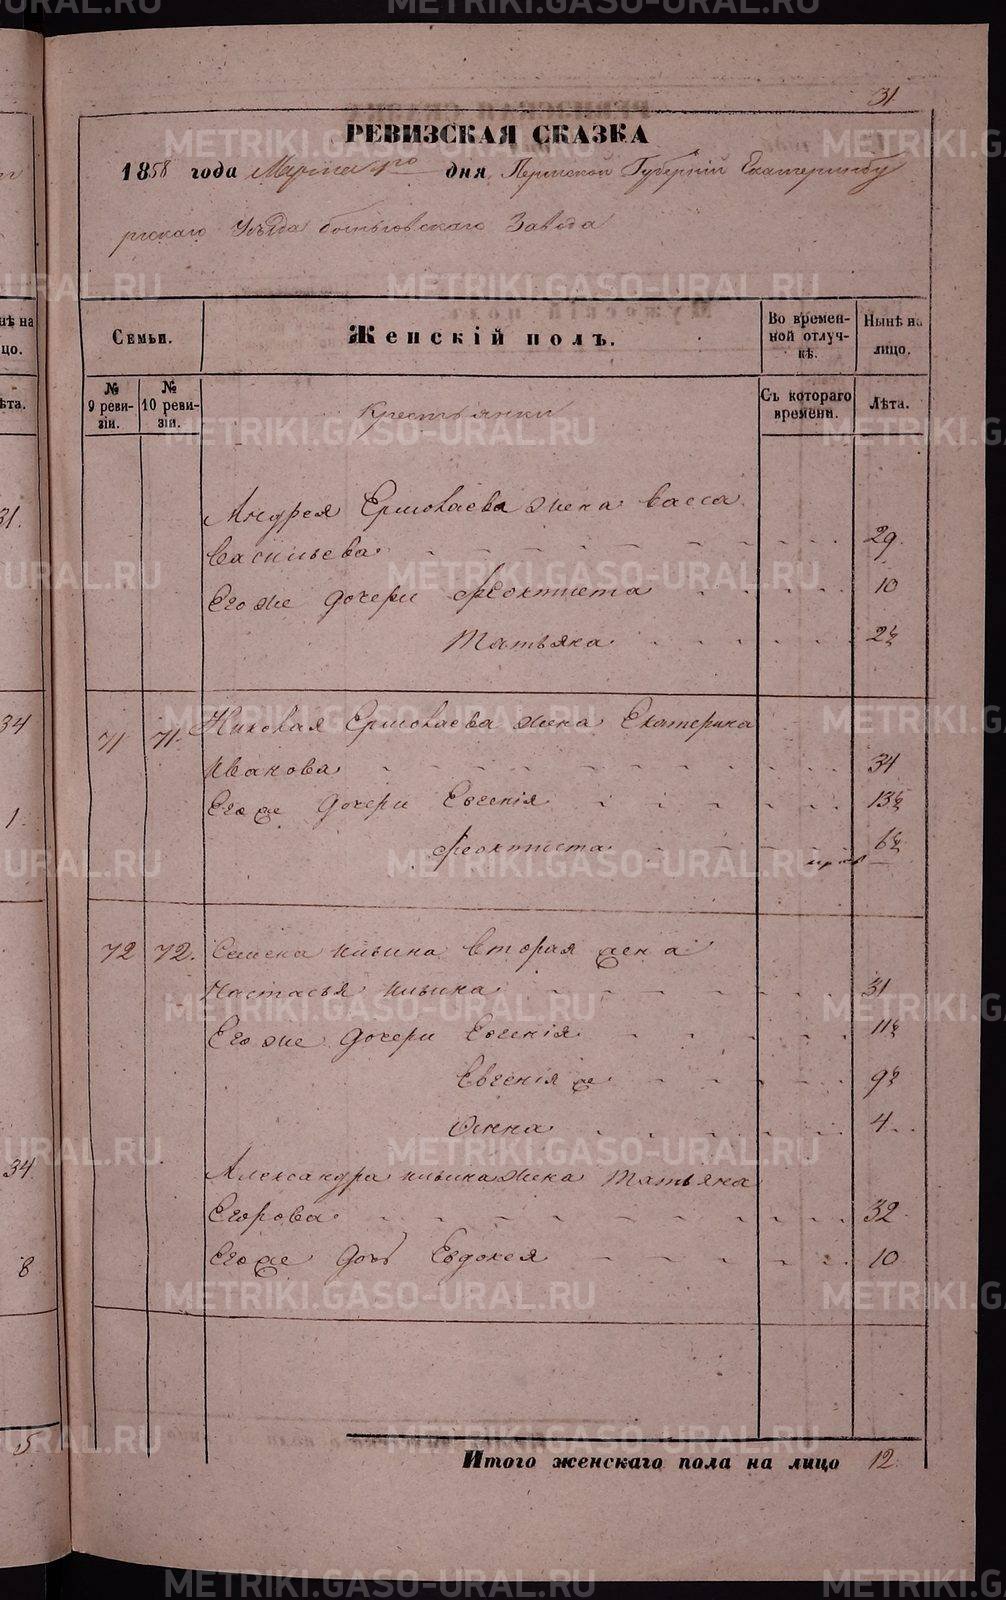 31
РЕВИЗСКАЯ СКАЗКА
1858 года Марта 1го дня Пермской Губерніи Екатеринбу
ргскаго Уѣзда Завода
Семьи.
Женскій полъ.
Во времен-
ной отлуч-
кѣ.
Нынѣ на
лицо.
№
9 реви-
зіи.
№
10 реви-
зіи.
Крестьянки
Съ котораго
времени.
Лѣта.
Андрея Ермолаева жена Васса
Васильева 29.
Его же дочери Феоктиста 10
Татьяна 2½
71 71. Николая Ермолаева жена Екатерина
Иванова 34
Его же дочери Евгенія 13½
Феоктиста 6½
72 72. Ильина вторая жена
Настасья Ильина 31
Его же дочери Евгенія 11½
Евгенія же 9½
Анна 4
Александра Ильина жена Татьяна
Егорова 32
Его же дочь Евдокея 10
Итого женскаго пола на лицо 12.
METRIKI.GASO-URAL.RU